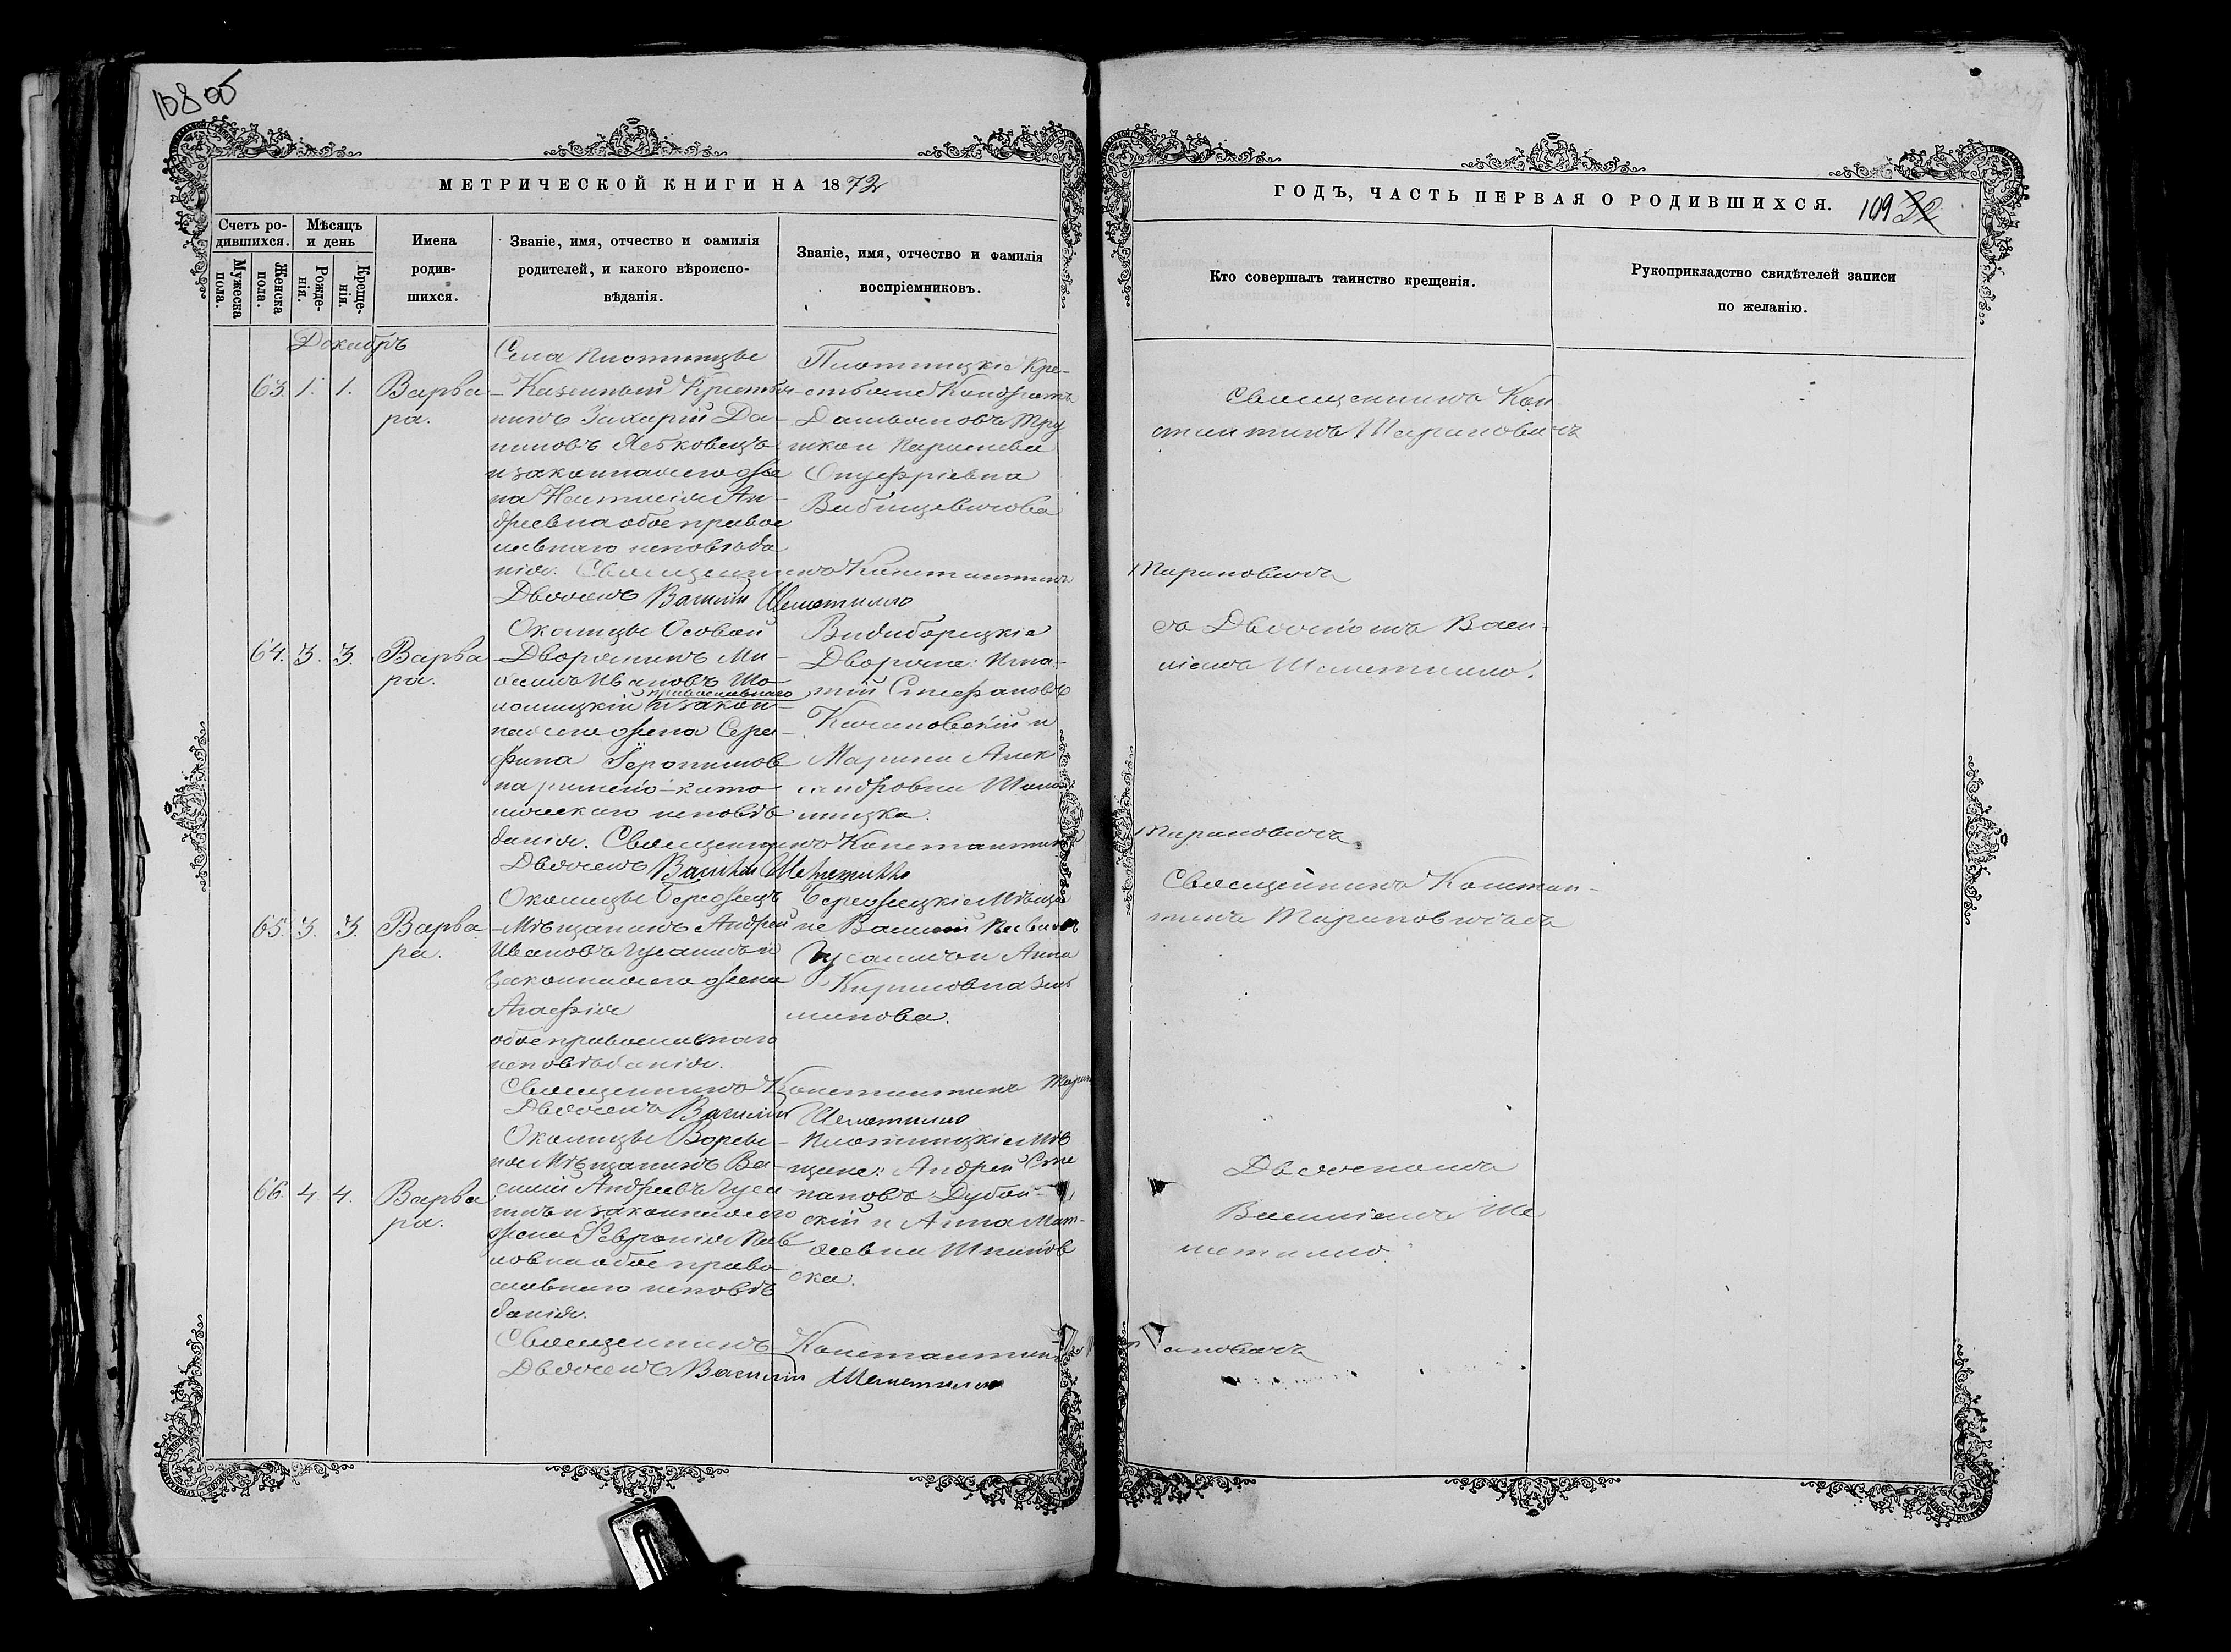 108 об
МЕТРИЧЕСКОЙ КНИГИ НА 1872
Счетъ ро-
дившихся.
Мужеска
пола.
Женска
пола.
Мѣсяцъ
и день
Рожде-
нія.
Креще-
нія.
Имена
родив-
шихся.
Званіе, имя, отчество и фамилія
родителей, и какого вѣроиспо-
вѣданія.
Званіе, имя, отчество и фамилія
воспріемниковъ.
Декабрь
63. 1. 1.
Варва
ра.
Села Плотницы
Казенный Крестья
нинъ Захарій Да-
ниловъ
и законная его же
на Настасія Ан-
дреевна обое право
славнаго исповѣда
нія. Священникъ Константинъ
Дьячекъ Василій Шеметилло
Плотницкіе Кре-
стьяне Кондратъ
Демьяновъ Тру
шко и Параскева
Онуфріевна
64. 3. 3.
Варва
ра.
Околицы Осовой
Дворянинъ Ми-
Ивановъ
православнаго
и закон-
ная его жена Сера-
фима Іеронимов
на римско-като
лическаго исповѣ
данія. Священникъ Константинъ
Дьячекъ Василій Шеметилло
Видиборецкіе
Дворяне: Игна-
тій Стефановъ
Качановскій и
Марина Алек
сандровна
65. 3. 3.
Варва
ра.
Околицы Бережецъ
Мѣщанинъ Андрей
Ивановъ Гусаничъ и
законная его жена
Агафія
обое православнаго
исповѣданія.
Священникъ Константинъ
Дьячекъ Василій Шеметилло
Бережецкіе Мѣща
не Василій
Гусаничъ и Анна
Кириловна
66. 4. 4.
Варва
ра.
Околицы
Мѣщанинъ Ва-
силій Андреевъ Гуса
ничъ и законная его
жена Февронія Пав
ловна обое право
славнаго исповѣ
данія.
Священникъ Константинъ
Дьячекъ Василій Шеметилло
Плотницкіе Мѣ
щане: Андрей Сте
пановъ Дубой-
скій и Анна Мат-
ѳеевна
ска.
ГОДЪ, ЧАСТЬ ПЕРВАЯ О РОДИВШИХСЯ.
109 32
Кто совершалъ таинство крещенія.
Рукоприкладство свидѣтелей записи
по желанію.
Священникъ Кон
стантинъ Тарановичъ
Тарановичъ
съ Дьячкомъ Васи-
ліемъ Шеметилло.
Тарановичъ.
Священникъ Констан-
тинъ Тарановичъ съ
Дьячкомъ
Василіемъ Ше
метилло.
ановичъ